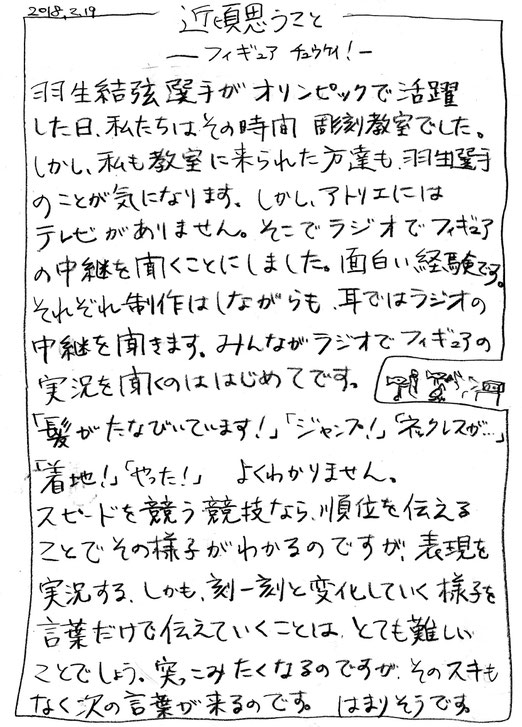 2018.2.19
近頃思うこと
―フィギュア チュウケイ!―
羽生結弦選手がオリンピックで活躍
した日、私たちはその時間 彫刻教室でした。
しかし、私も教室に来られた方達も、羽生選手
のことが気になります。しかし、アトリエには
テレビがありません。そこでラジオでフィギュア
の中継を聞くことにしました。面白い経験です。
それぞれ制作はしながらも、耳ではラジオの
中継を聞きます。みんながラジオでフィギュアの
実況を聞くのははじめてです。
「髪がたなびいています!」「ジャンプ!」「ネックレスが…」
「着地!」「やった!」 よくわかりません。
スピードを競う競技なら、順位を伝える
ことでその様子がわかるのですが、表現を
実況する、しかも、刻一刻と変化していく様子を
言葉だけで伝えていくことは、とても難しい
ことでしょう。突っこみたくなるのですが、そのスキも
なく次の言葉が来るのです。 はまりそうです。